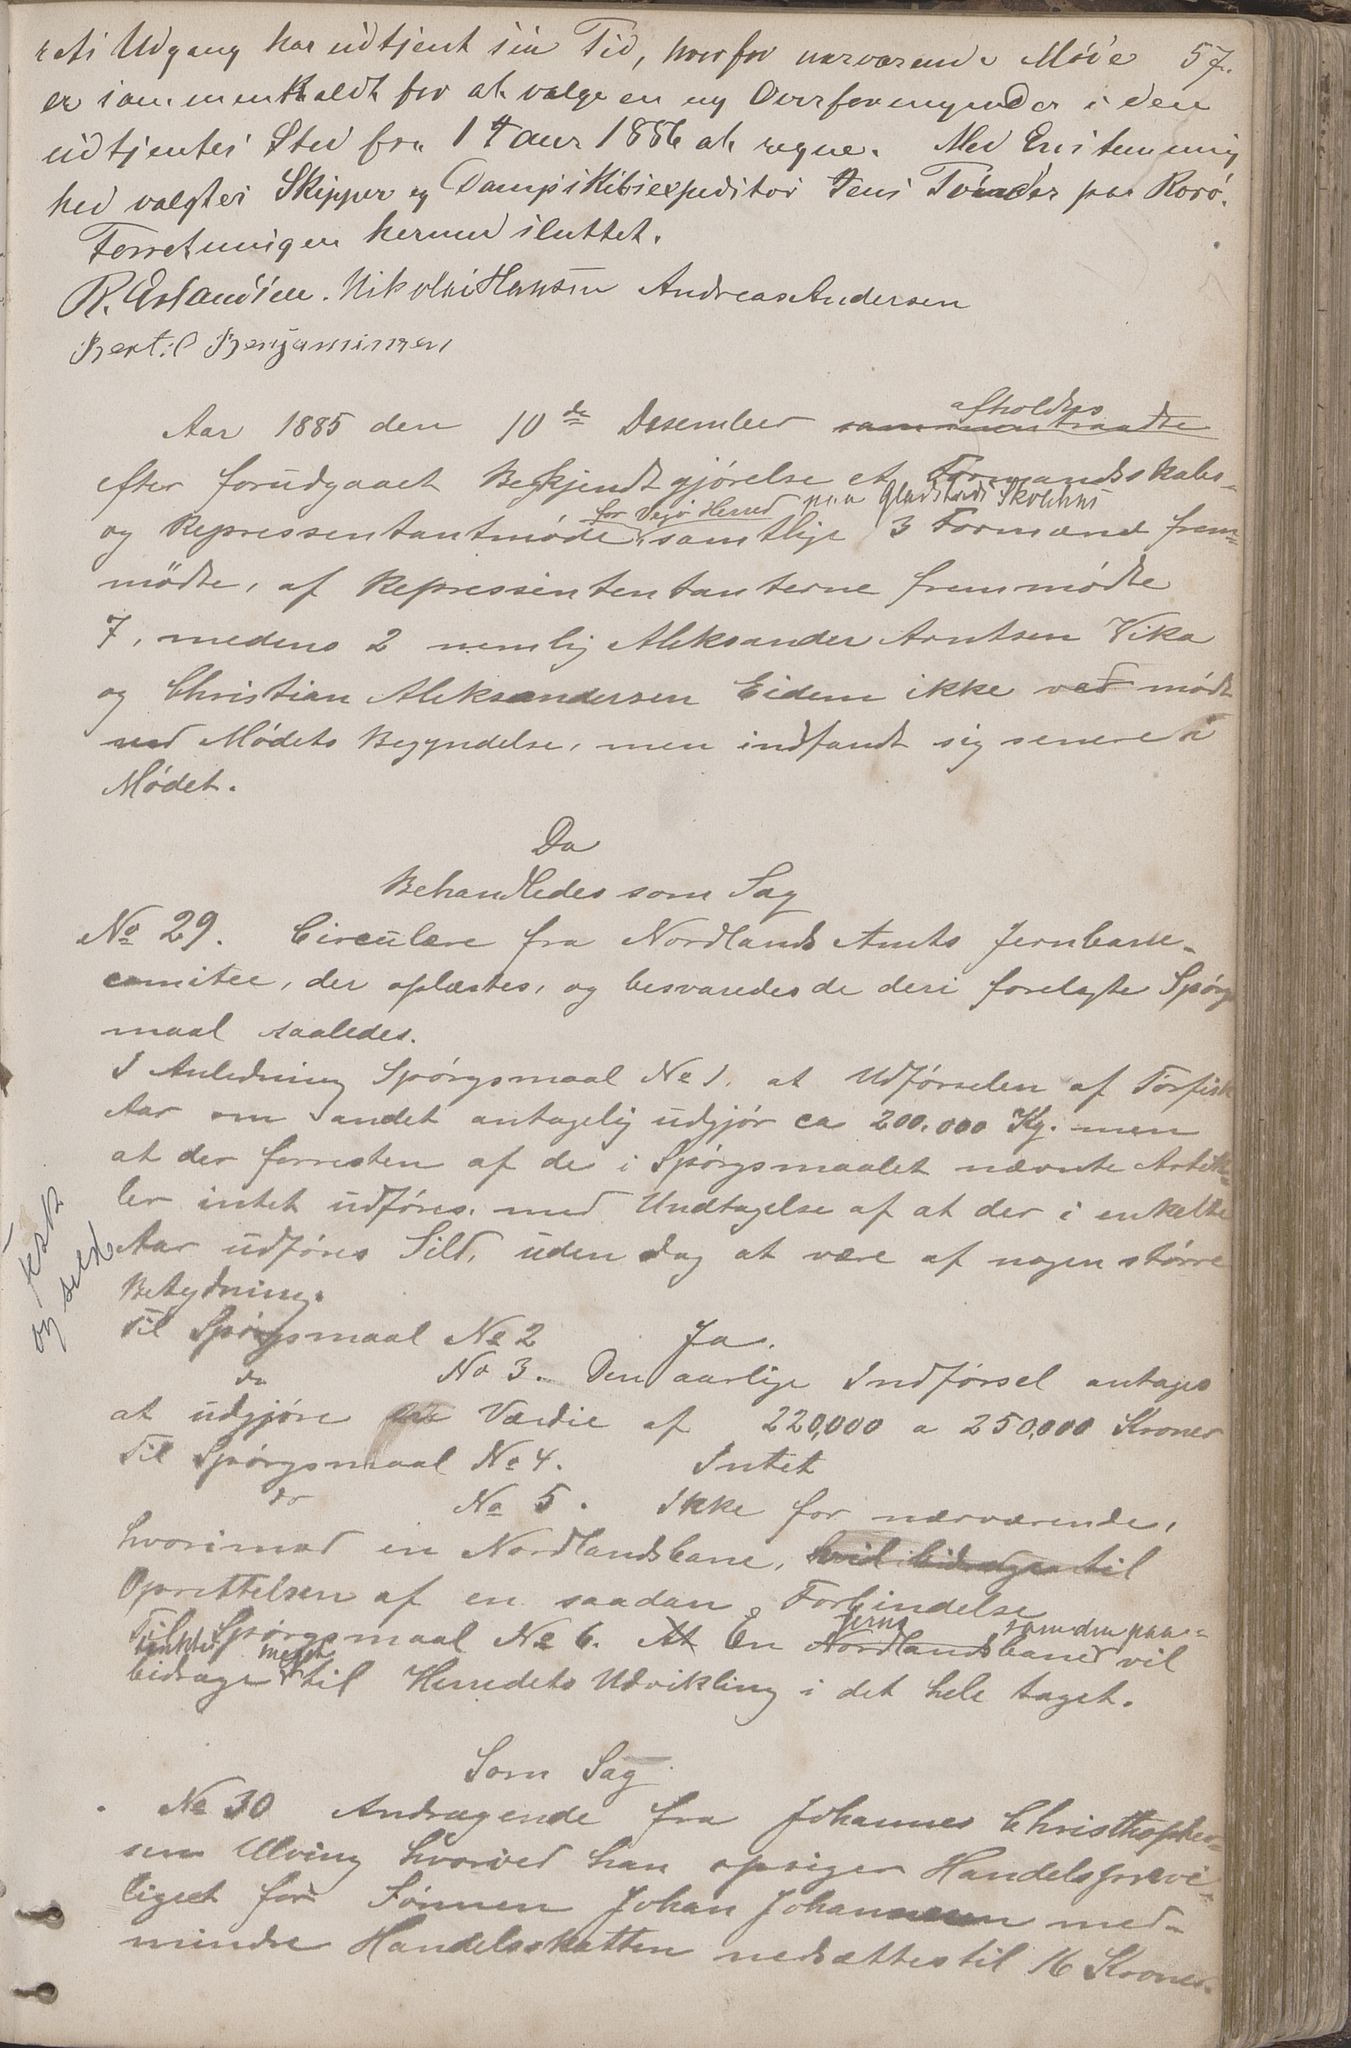 rets Udgang har udtjent sin Tid, hvorfor nærværende Møde 57.
er sammenkaldt for at valge en ny Overformynder i den
udtjentes Sted fra 1 Janr 1886 at regne. Med Enstemmig
hed valgtes Skipper og Dampskibsexpeditør Jens Tvinder paa Rorö.
Forretningen hermed sluttet.
R. Erlandsen. Nikolai Hansen Andreas Andersen
Bertil Benjaminsen
Aar 1885 den 10de Desember sammentraadte afholdtes
efter forudgaaet Begkjendtgjørelse et Formandsskabs-
og Repressentantmøde for Vegø Herred paa Gladstad Skolehus samtlige 3 Formænd frem-
mödte, af Repressintentanterne fremmødte
7, medens 2 nemlig Aleksander Arntsen Vika
og Christian Aleksandersen Eidem ikke ved mødt
ved Mødets Begyndelse, men indfandt sig senere i
Mødet.
Da
Behandledes som Sag
No 29. Circulære fra Nordlands Amts Jernbane-
comitee, der oplæstes, og besvaredes de deri forelagte Spörgs
maal saaledes.
I Anledning Spørgsmaal No 1. at Udførselen af Törfisk
Aar om andet antagelig udgjør ca 200.000 Kg. men
at der forresten af de i Spørgsmaalet nævnte Artik-
ler intet udføres. med Undtagelse af at der i enkelte
Aar udføres Sild, uden dog at være af nogen større
Betydning.
fisk
og sild
Til Spørgsmaal No 2 Ja.
do No 3. Den aarlige Indførsel antages
at udgjöre en Værdie af 220,000 a 250,000 Kroner
Til Spørgsmaal No 4. Intet
do No 5. Ikke for nærværende,
hvorimod en Nordlandsbane, hvil bidrages til
Oprettelsen af en saadan Forbindelse
Til Spørgsmaal No 6. At En Nordlandsbane Jern som den paa-
tænkte vil
bidrage meget til Herredets Udvikling i det hele taget.
Som Sag
No 30 Andragende fra Johannes Christhopher-
sen Ulving hvorved han opsiger Handelsprevi-
liget for Sönnen Johan Johannesen med-
mindre Handelsskatten nedsættes til 16 Kroner.